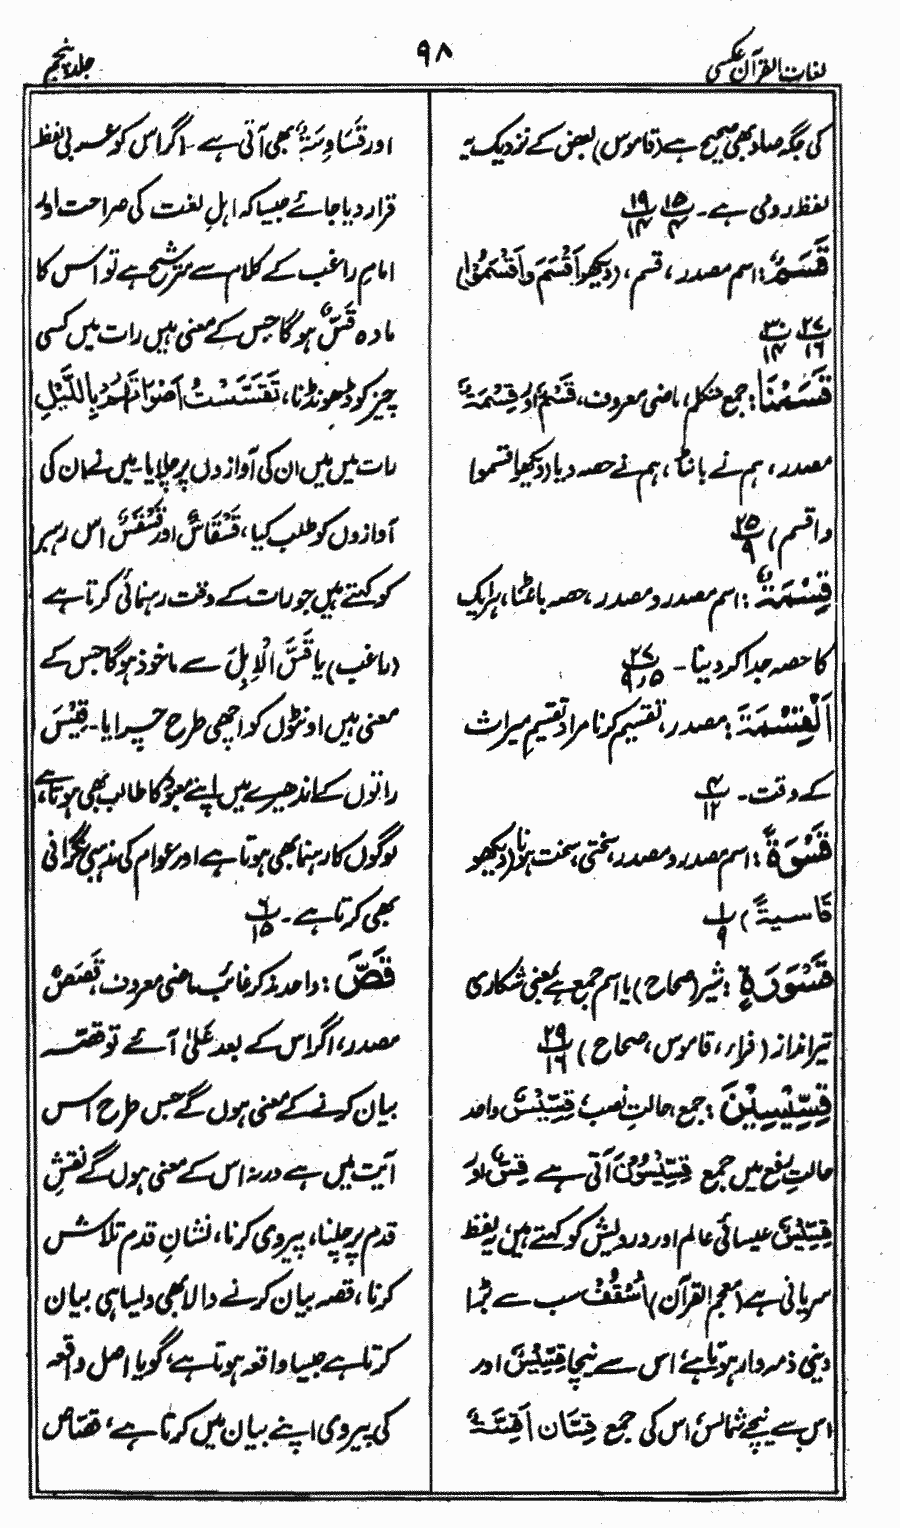 لغات القرآن عکسی
۹۸
جلد پنجم
کی جگہ صاد بھی صحیح ہے (قاموس) بعض کے نزدیک یہ
لفظ رومی ہے۔ ۱۵/۴ ۱۹/۱۴
قَسَمٌ: اسم مصدر، قسم، (دیکھو اَقْسَمَ و اَقْسَمُوْا)
۲۷/۱۶ ۳۰/۱۴
قَسَمْنَا: جمع متکلم، ماضی معروف، قَسْمٌ اور قِسْمَۃٌ
مصدر، ہم نے بانٹا، ہم نے حصہ دیا (دیکھو اقسموا
واقسم) ۲۵/۹
قِسْمَۃٌ: اسم مصدر و مصدر، حصہ بانٹنا، ہر ایک
کا حصہ جدا کر دینا۔ ۲۷/۹،۵
اَلْقِسْمَۃَ: مصدر، تقسیم کرنا مراد تقسیم میراث
کے وقت۔ ۴/۱۲
قَسْوَۃً: اسم مصدر و مصدر، سختی، سخت ہونا (دیکھو
قَاسیۃً) ۱/۹
قَسْوَرَۃٍ: شیر (صحاح) یا اسم جمع ہے بمعنی شکاری
تیرانداز (فراء، قاموس، صحاح) ۲۹/۱۶
قِسِّیْسِیْنَ: جمع، حالتِ نصب، قِسِّیْسٌ واحد
حالتِ رفع میں جمع قِسِّیْسُوْنَ آتی ہے قِسٌّ اور
قِسِّیْسٌ عیسائی عالم اور درویش کو کہتے ہیں، یہ لفظ
سریانی ہے (معجم القرآن) اُسْقُفْ سب سے بڑا
دینی ذمہ دار ہوتا ہے، اس سے نیچا قِسِّیْسٌ اور
اس سے نیچے شماس، اس کی جمع قِسَّان اَقِسَّۃٌ
اور قَسَاوِسَۃٌ بھی آتی ہے۔ اگر اس کو عربی لفظ
قرار دیا جائے جیسا کہ اہلِ لغت کی صراحت اور
امام راغب کے کلام سے مترشح ہے تو اس کا
مادہ قَسٌّ ہوگا جس کے معنی ہیں رات میں کسی
چیز کو ڈھونڈنا، تَقَسَّسْتُ اَصْوَاتَھُمْ بِاللَّیْلِ
رات میں میں ان کی آوازوں پر چلا یا میں نے ان کی
آوازوں کو طلب کیا، قَسْقَاسٌ اور قَسْقَسٌ اس رہبر
کو کہتے ہیں جو رات کے وقت رہنمائی کرتا ہے
(راغب) یا قَسَّ الْاِبِلَ سے ماخوذ ہوگا جس کے
معنی ہیں اونٹوں کو اچھی طرح چرایا۔ قِسِّیْسَ
راتوں کے اندھیرے میں اپنے معبود کا طالب بھی ہوتا ہے،
لوگوں کا رہنما بھی ہوتا ہے اور عوام کی مذہبی نگرانی
بھی کرتا ہے۔ ۶/۱۵
قَصَّ: واحد مذکر غائب ماضی معروف، قَصَصٌ
مصدر، اگر اس کے بعد عَلیٰ آئے تو قصہ
بیان کرنے کے معنی ہوں گے جس طرح اس
آیت میں ہے ورنہ اس کے معنی ہوں گے نقشِ
قدم پر چلنا، پیروی کرنا، نشانِ قدم تلاش
کرنا، قصہ بیان کرنے والا بھی ویسا ہی بیان
کرتا ہے جیسا واقعہ ہوتا ہے، گویا اصل واقعہ
کی پیروی اپنے بیان میں کرتا ہے، قصّاص